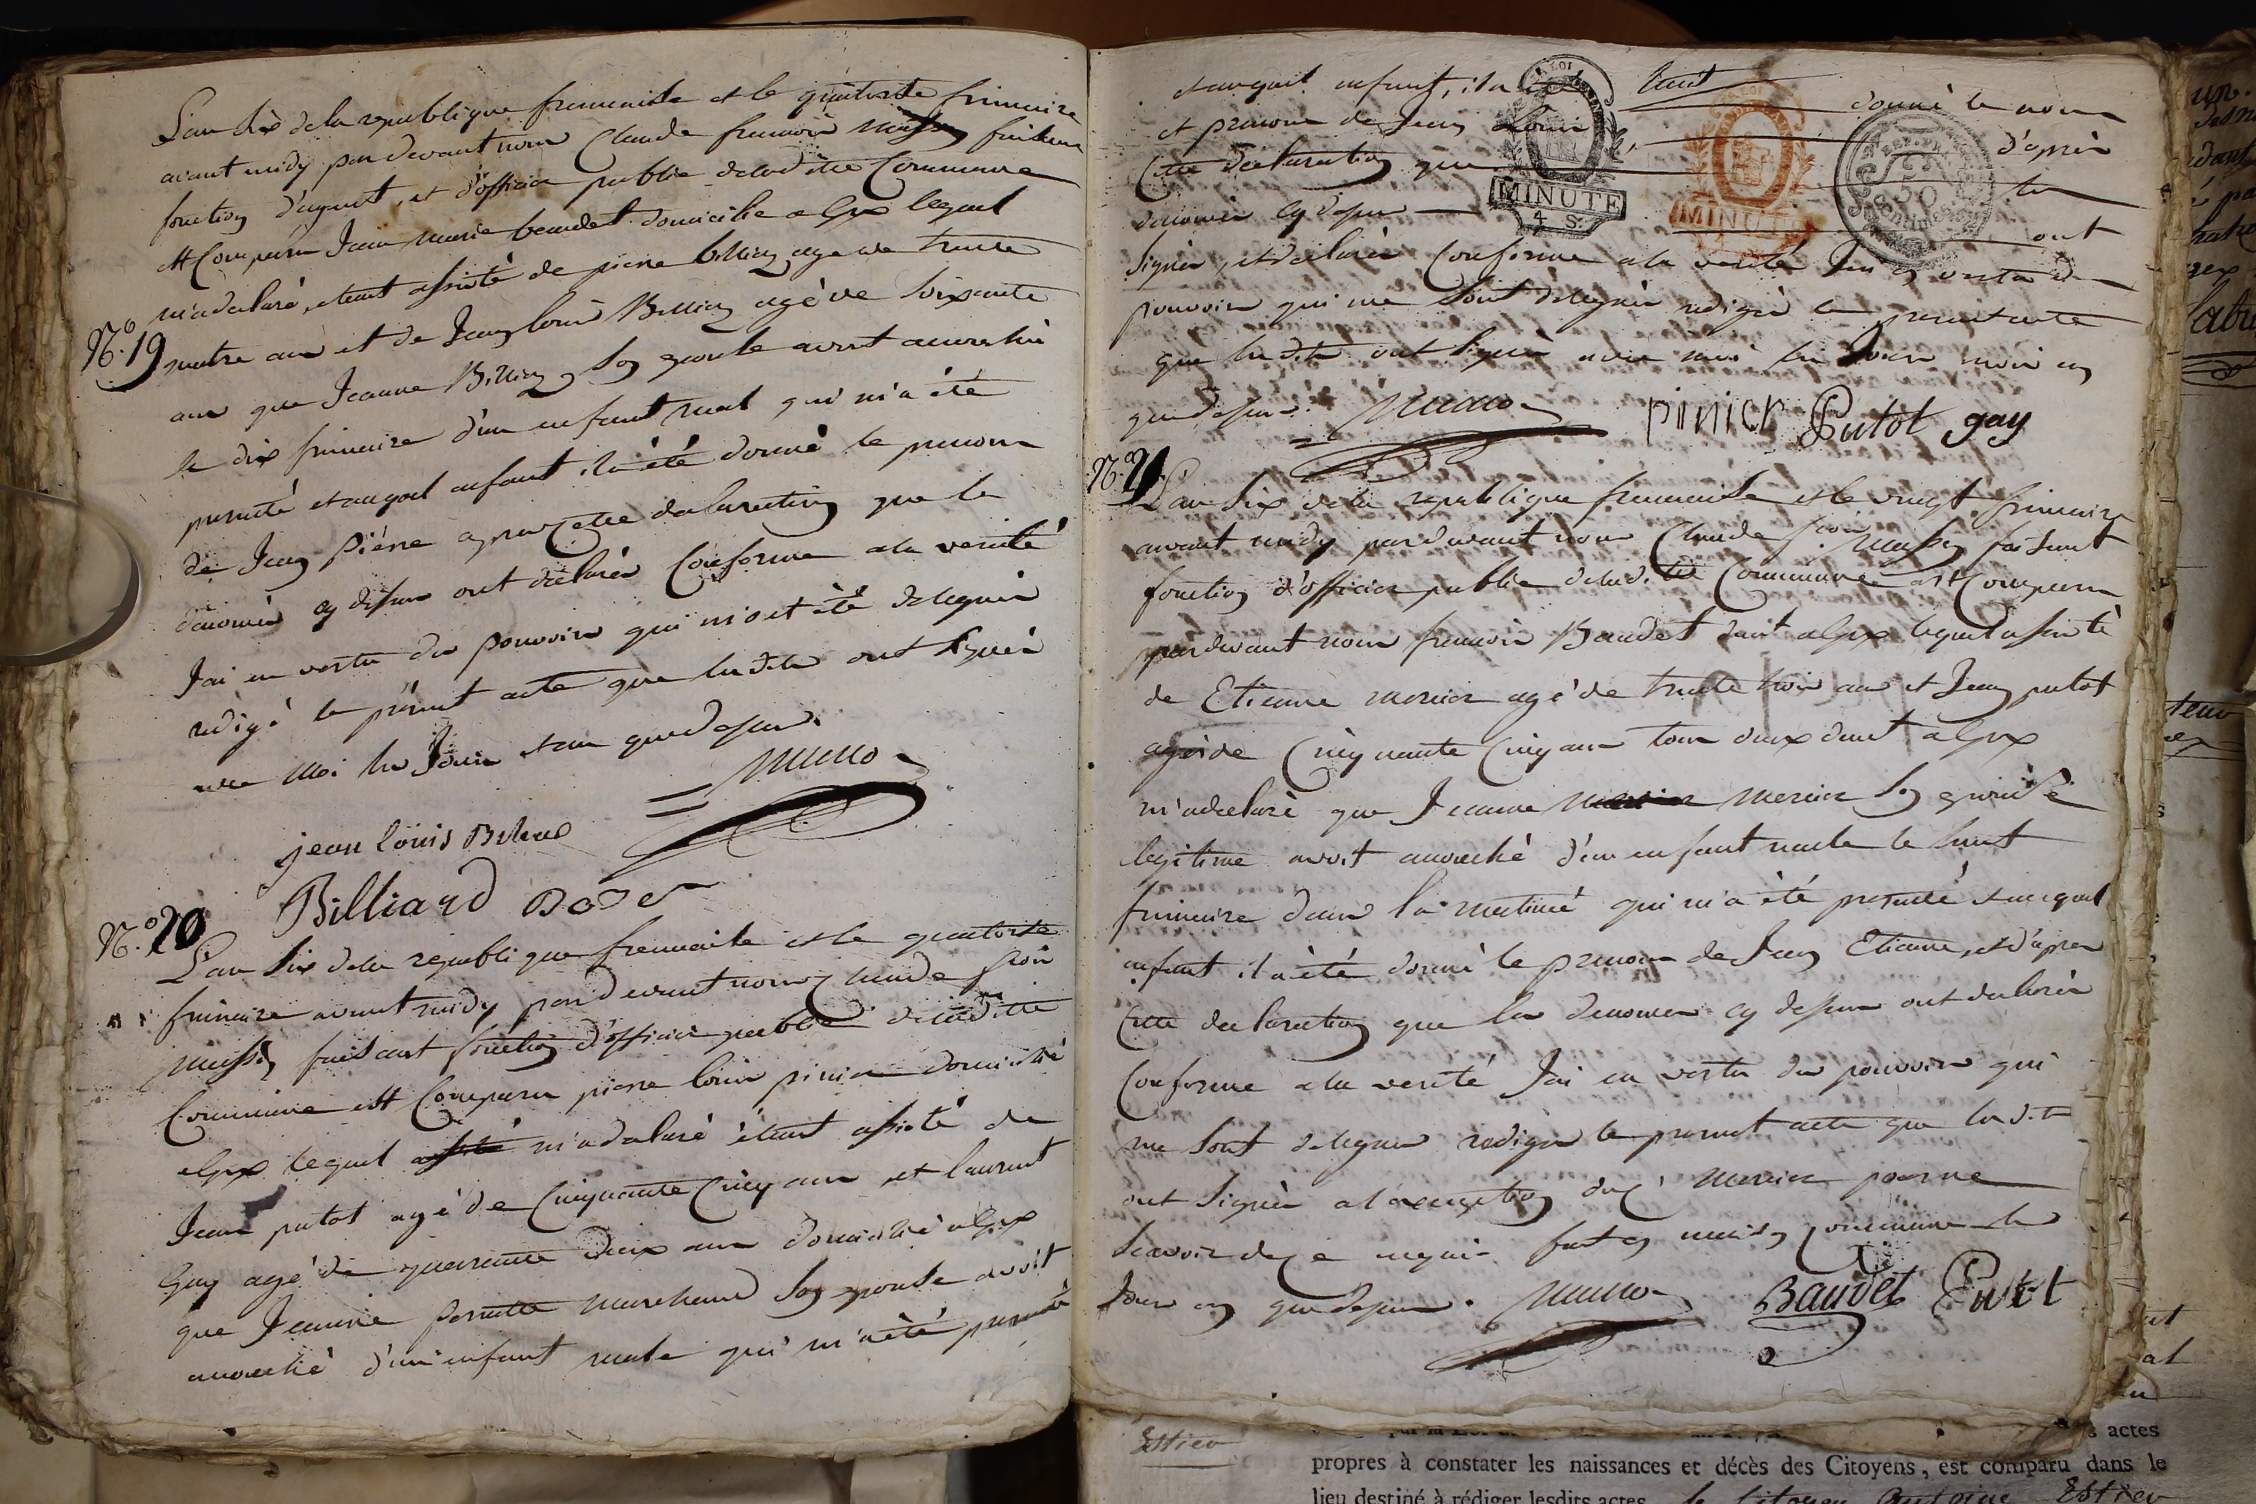 N.o 19
L'an six de la republique francaise et le quatorze frimaire
avant midy par devant nous Claude francois faisant
fonction d'agent, et d'officier public de laditte Commune
est Comparu Jean marie baudet domicilie a Gex lequel
m'a declaré, etant assisté de pierre billiay age de trente
quatre ans et de Jean louis Billiay agé de soixante
ans que Jeanne Billiay son epouse avoit accouchée
le dix frimaire d'un enfant mal qui m'a été
presenté et auquel enfant il a été donné le prenom
de Jean Piérre apres Cette declaration que le
denomés cy dessus ont declarés Conforme a la verité
J'ai en vertu du pouvoirs qui m'ont été delegués
redigé le présent acte que lesdits ont signés
avec moi les Jours et an que dessus.
jean louis
Billiard
N.o 20
L'an six de la republique francaise et le quatorze
frimaire avant midy par devant nous Claude fçois
faisant fonction d'officier public de laditte
Commune est Comparu pierre louis pinier domicilié
a Gex lequel m'a declaré étant assisté de
Jean putot agé de Cinquante Cinq ans et laurent
Gay agé de quarante deux ans domicilié a Gex
que Jeanne pernette marchand son epouse avoit
accouché d'un enfant male qui m'a été presenté
et auquel enfant, il a été donné le nom
et prenom de Jean Louis, d'après
Cette declaration que les
denomés cy dessus ont
signés, et declarés Conforme a la verité J'ai en vertu des
pouvoirs qui me sont delegués redigé le present acte
que lesdits ont signés avec moi les Jour mois an
que dessus.
pinier Putot gay
N.o 21
L'an six de la republique francaise et le vingt frimaire
avant midy par devant nous Claude fçois faisant
fonction d'officier public de laditte Commune est Comparu
par devant nous francois Baudet dmt a Gex lequel assisté
de Etienne mercier agé de trente trois ans et Jean putot
agé de Cinquante Cinq ans tous deux dmt a Gex
m'a declaré que Jeanne mercier son epouse
legitime avoit accouché d'un enfant male le huit
frimaire dans la matiné qui m'a été presenté et auquel
enfant il a été donné le prenom de Jean Etienne, et d'apres
Cette declaration que les denomés cy dessus ont declarés
Conforme a la verité J'ai en vertu du pouvoirs qui
me sont delegués redigé le present acte que lesdits
ont signés a l'exception du Cn mercier pour ne
scavoir de ce requis fait en maison commune les
Jour an que dessus.
Baudet Putot
LA LOI
MINUTE
4 S.
LA LOI
MINUTE
50
Centimes
Estieu
actes
propres à constater les naissances et décès des Citoyens, est comparu dans le
lieu destiné à rédiger lesdits actes le Citoyen Antoine Estieu